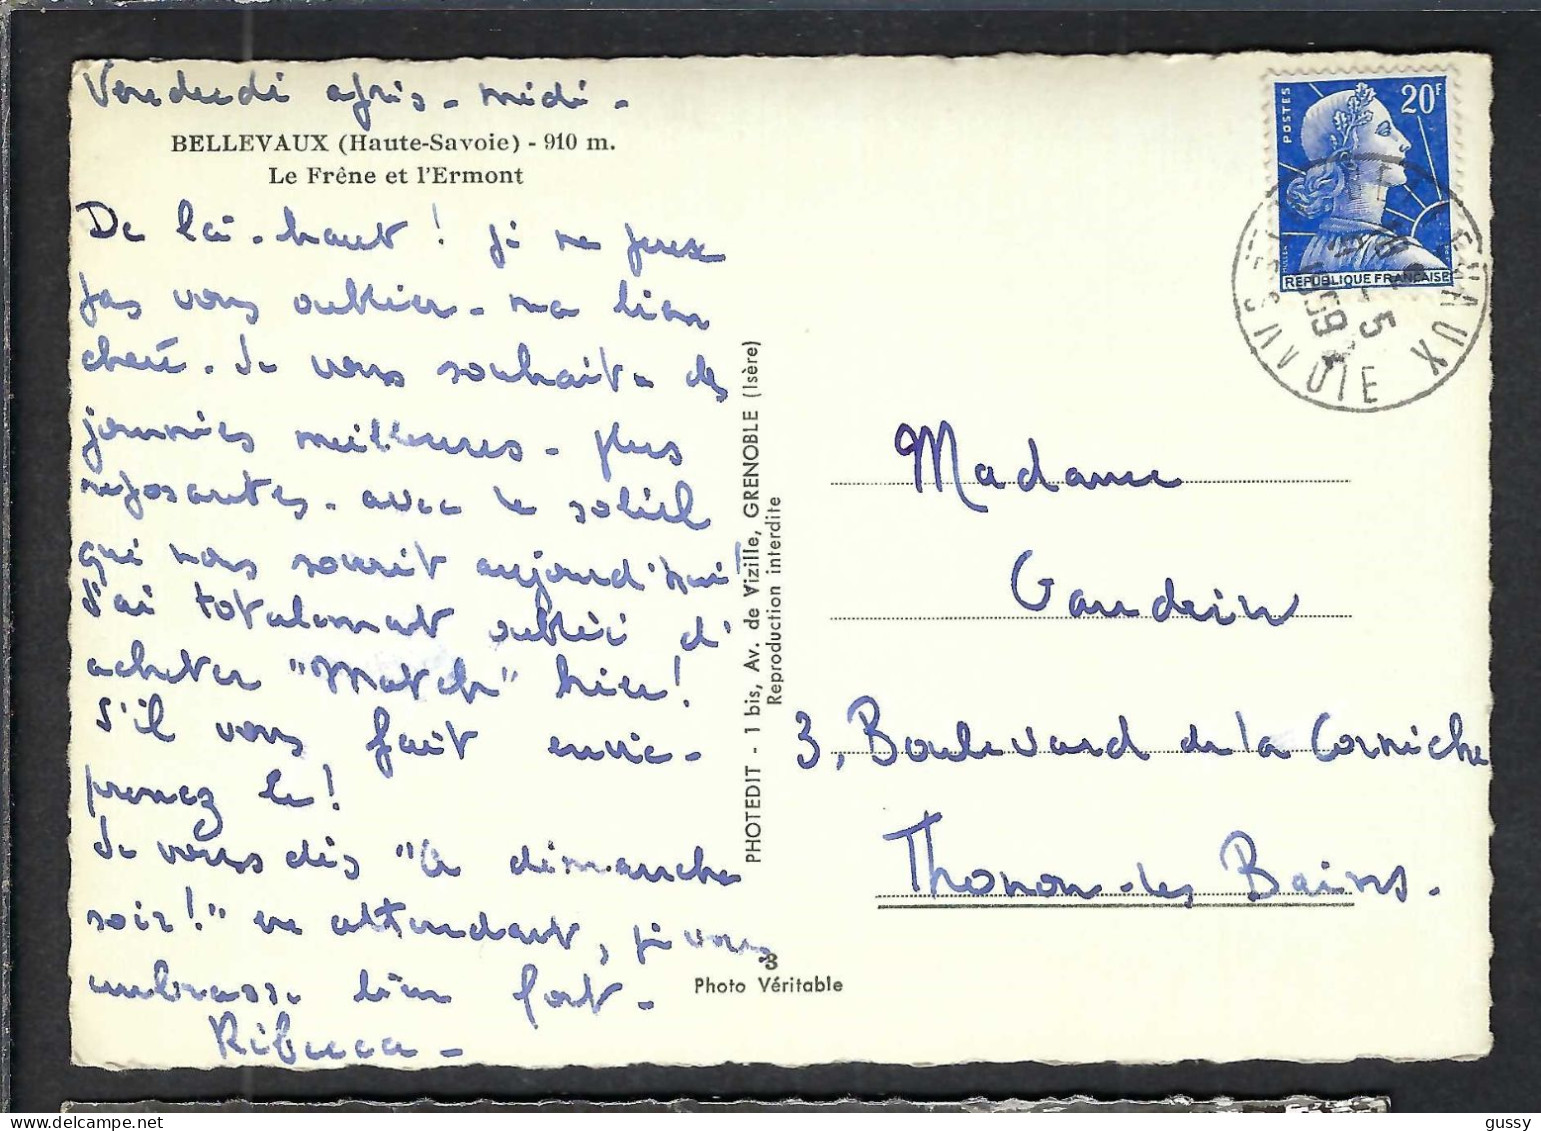 Vendredi après-midi -
BELLEVAUX (Haute-Savoie) - 910 m.
Le Frêne et l'Ermont
De là-haut ! je ne peux
pas vous oublier - ma bien
chère. Je vous souhaite des
journées meilleures - plus
reposantes - avec le soleil
qui nous sourit aujourd'hui !
J'ai totalement oublié d'
acheter "Match" hier !
S'il vous fait envie -
prenez le !
Je vous dis "à dimanche
soir !" en attendant, je vous
embrasse bien fort -
Rébecca -
PHOTEDIT - 1 bis, Av. de Vizille, GRENOBLE (Isère)
Reproduction interdite
3
Photo Véritable
POSTES
20F
MULLER
REPUBLIQUE FRANÇAISE
BELLEVAUX
-5
1959
HTE SAVOIE
Madame
Gaudrin
3, Boulevard de la Corniche
Thonon-les Bains.
gussy